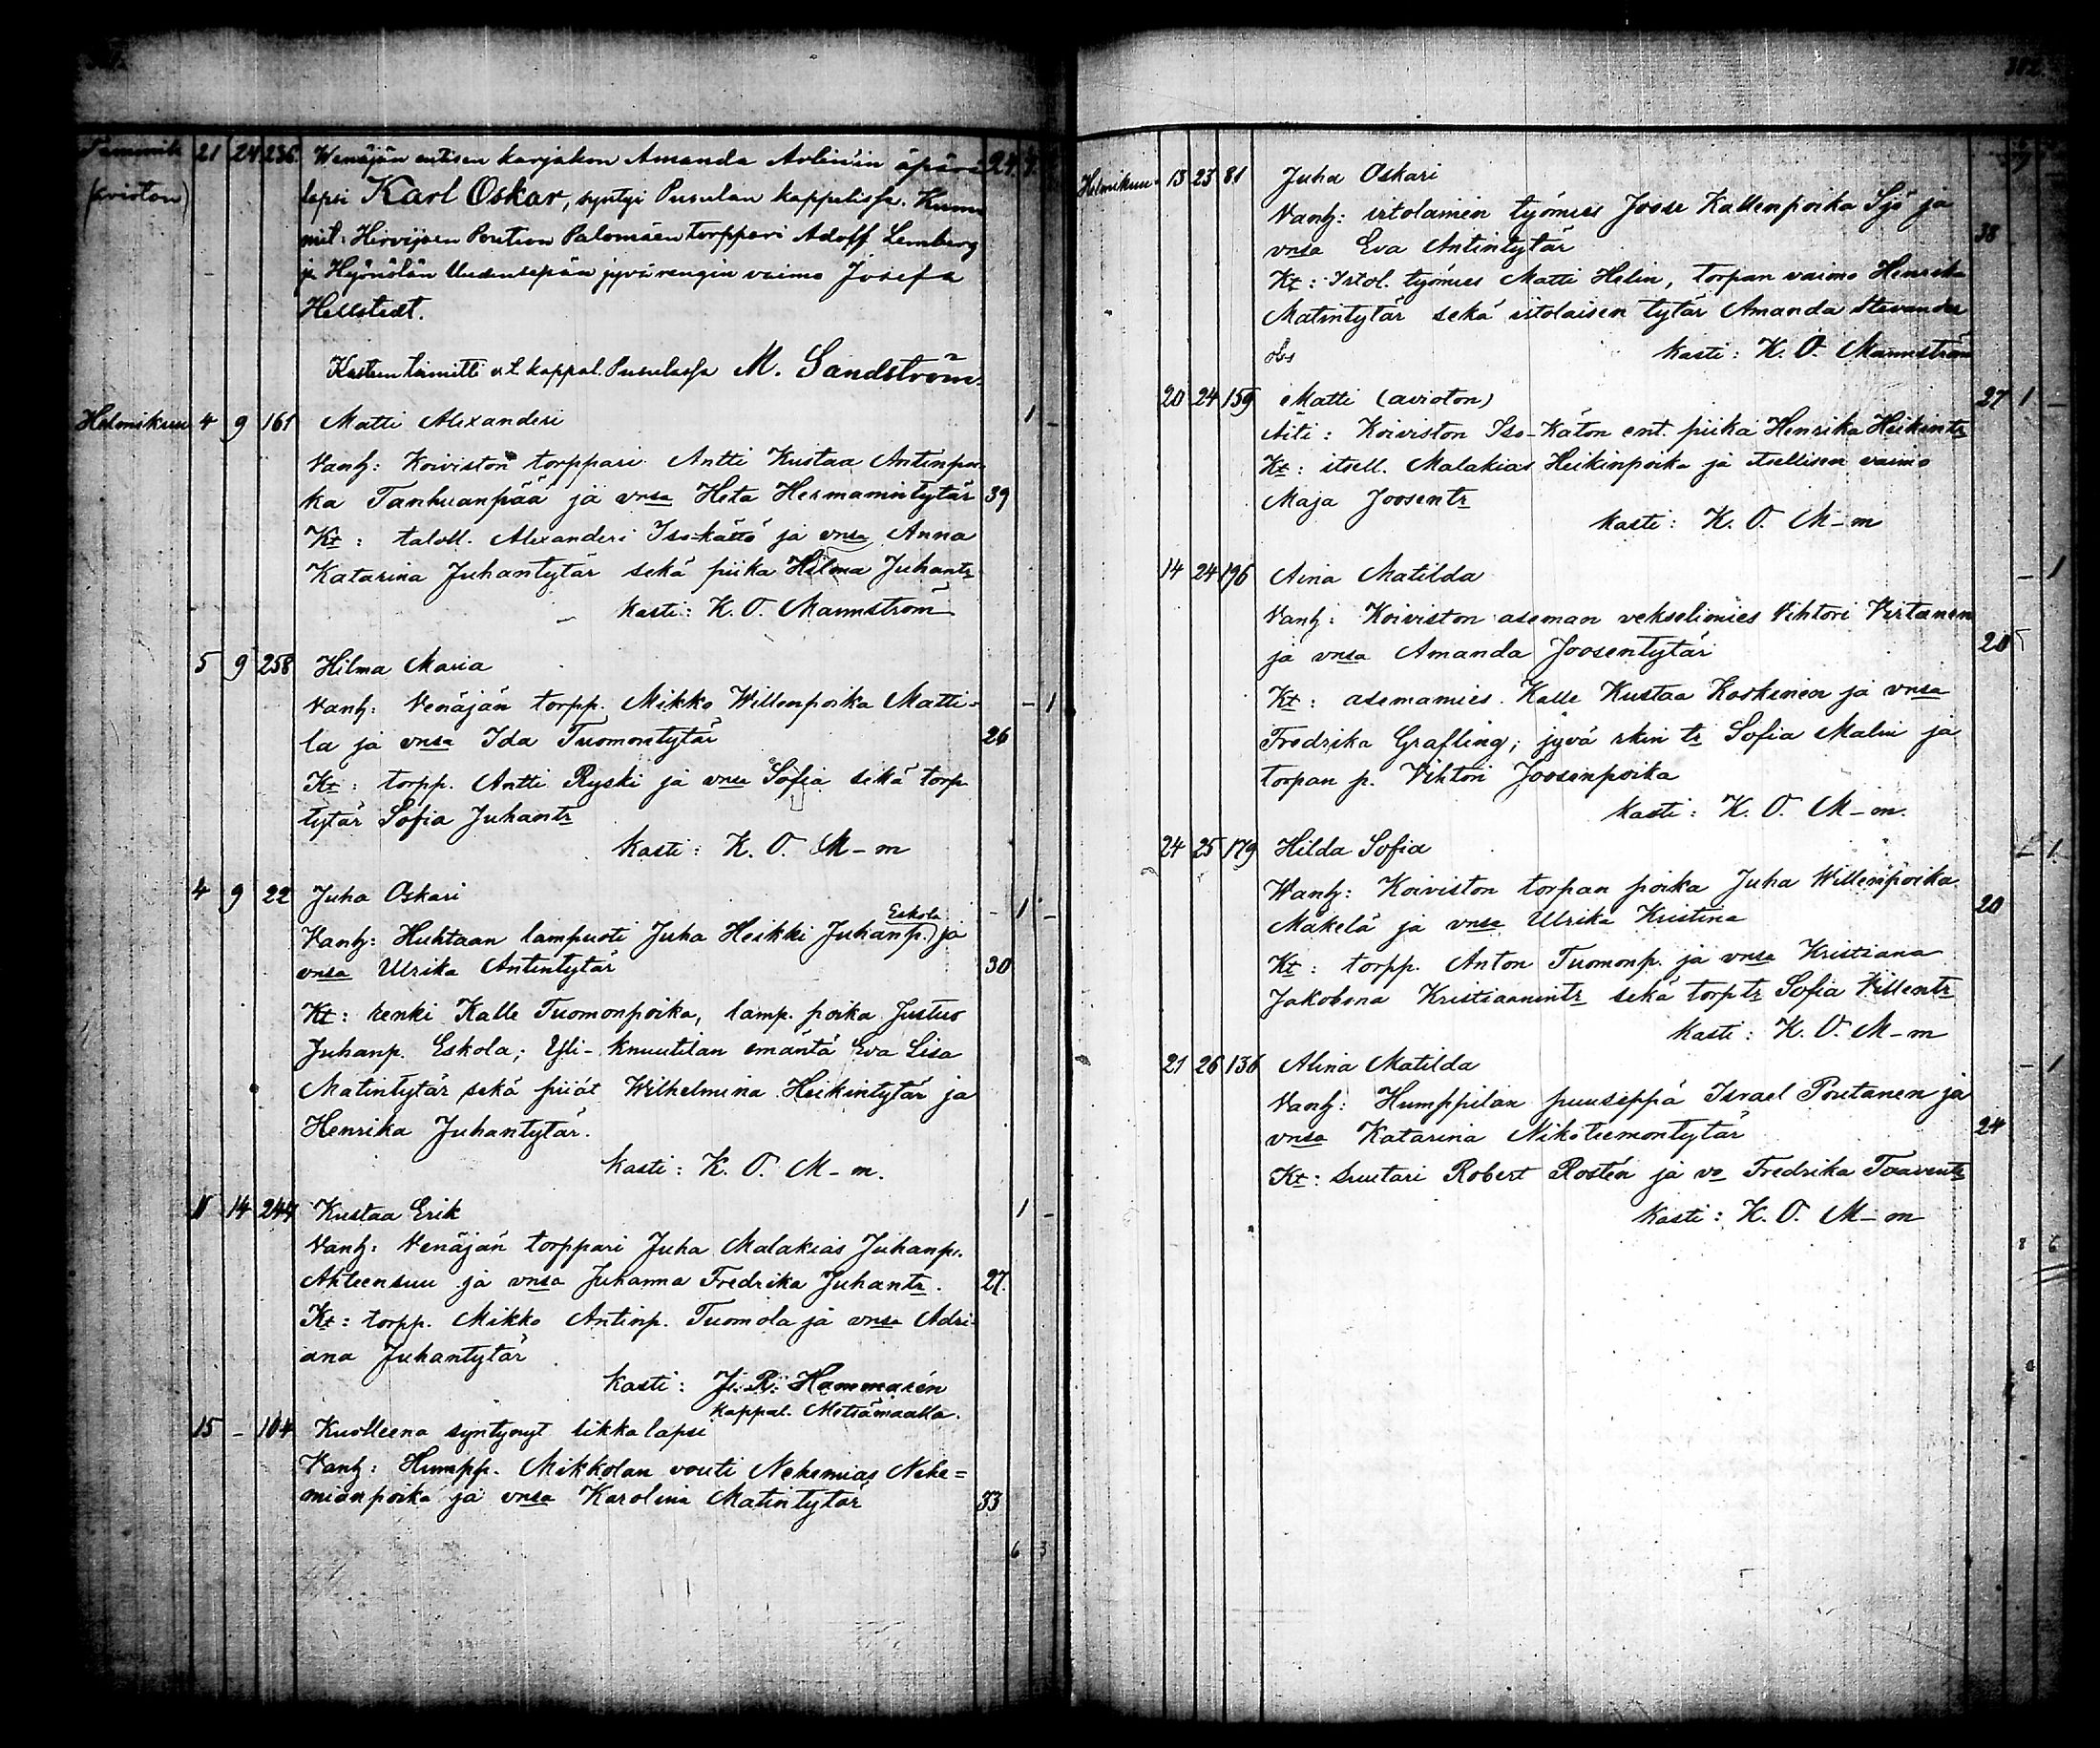 Tammik 21 24 236 Wenäjän entisen karjakon Amanda Arlinin äpärä 24 1
(avioton) lapsi Karl Oskar, syntyi Pusulan kappelissa. Kum-
mit: Hirvijoen Pention Palomäen torppari Adolf Lemberg
ja Hyönölän Uudensepän jyvärengin vaimo Josefa
Hellstedt.
Kasteen toimitti v.t. kappal. Pusulassa M. Sandström.
Helmikuu 4 9 161 Matti Alexanderi 1 -
Vanh: Koiviston torppari Antti Kustaa Antinpoi-
ka Tanhuanpää ja vnsa Heta Hermannintytär 39
Kt: taloll. Alexanderi Iso-kättö ja vnsa Anna
Katarina Juhantytär sekä piika Hilma Juhantr
kasti: K. O. Mannström
5 9 258 Hilma Maria
Vanh: Venäjän torpp. Mikko Willenpoika Matti- - 1
la ja vnsa Ida Tuomontytär 26
Kt: torpp. Antti Ryski ja vnsa Sofia sekä torp
tytär Sofia Juhantr
kasti: K. O. M-m
4 9 22 Juho Oskari
Eskola
Vanh: Huhtaan lampuoti Juha Heikki Juhanp. ja 1 -
vnsa Ulrika Antintytär 30
Kt: renki Kalle Tuomonpoika, lamp. poika Justus
Juhanp. Eskola; Yli-Knuutilan emäntä Eva Lisa
Matintytär sekä piiat Wilhelmina Heikintytär ja
Henrika Juhantytär.
kasti: K. O. M-m.
11 14 244 Kustaa Erik 1 -
Vanh: Venäjän torppari Juha Malakias Juhanp.
Ahteensuu ja vnsa Juhanna Fredrika Juhantr. 27.
Kt: torpp. Mikko Antinp. Tuomola ja vnsa Adri-
ana Juhantytär
kasti: J. R. Hammarén
kappal. Metsämaalla.
15 - 104 Kuolleena syntynyt tikka lapsi
Vanh: Humpp. Mikkolan vouti Nehemias Nehe=
mianpoika ja vnsa Karolina Matintytär 33
6 3
Helmikuu 13 23 81 Juha Oskari
Vanh: irtolainen työmies Joose Kallenpoika Sjö ja
vnsa Eva Antintytär 38
Kt: Irtol. työmies Matti Helin, torpan vaimo Henrika
Matintytär sekä irtolaisen tytär Amanda Stevander
kasti: K. O. Mannström
20 24 159 Matti (avioton) 27 1 -
Äiti: Koiviston Iso-Kätön ent. piika Henrika Heikintr
Kt: itsell. Malakias Heikinpoika ja itsellisen vaimo
Maja Joosentr
kasti: K. O. M-m
14 24 196 Aina Matilda - 1
Vanh: Koiviston aseman vekselimies Vihtori Virtanen
ja vnsa Amanda Joosentytär 25
Kt: asemamies Kalle Kustaa Koskinen ja vnsa
Fredrika Grafling; jyvä tr Sofia Malin ja
torpan p. Vihtori Joosenpoika
kasti: K. O. M-m.
24 25 179 Hilda Sofia - 1
Wanh: Koiviston torpan poika Juha Willenpoika
Mäkelä ja vnsa Ulrika Kristina 20
Kt: torpp. Anton Tuomonp. ja vnsa Kristiana
Jakobina Kristianintr sekä torptr Sofia Villentr
kasti: K. O. M-m
21 26 136 Alina Matilda - 1
Vanh: Humppilan puuseppä Israel Poutanen ja
vnsa Katarina Nikotemontytär 24
Kt: suutari Robert Rostén ja vo Fredrika Taaventr
kasti: K. O. M-m
8 6